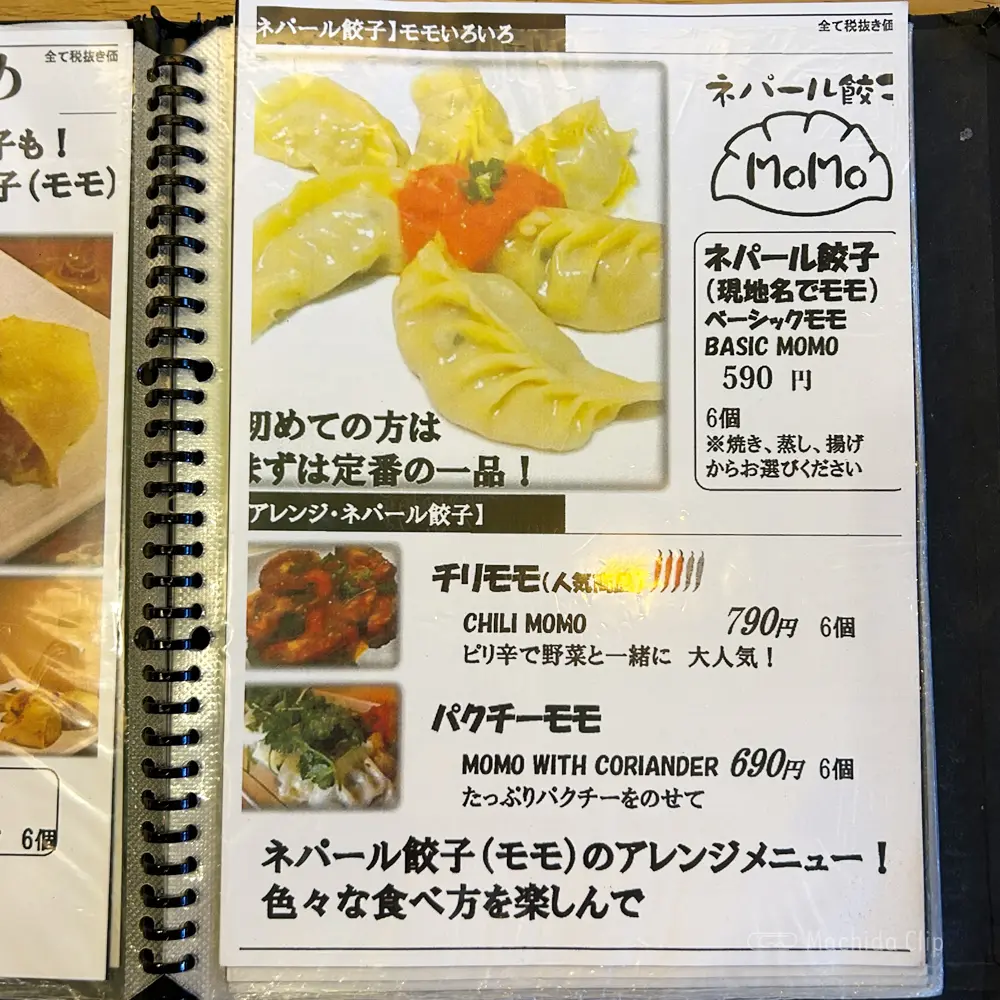 全て税抜き価
め
子も！
子(モモ)
6個
ネパール餃子】モモいろいろ
全て税抜き価
ネパール餃子
MoMo
ネパール餃子
(現地名でモモ)
ベーシックモモ
BASIC MOMO
590 円
6個
※焼き、蒸し、揚げ
からお選びください
初めての方は
まずは定番の一品！
アレンジ・ネパール餃子】
チリモモ(人気
CHILI MOMO 790円 6個
ピリ辛で野菜と一緒に 大人気！
パクチーモモ
MOMO WITH CORIANDER 690円 6個
たっぷりパクチーをのせて
ネパール餃子(モモ)のアレンジメニュー！
色々な食べ方を楽しんで
Machida Clip